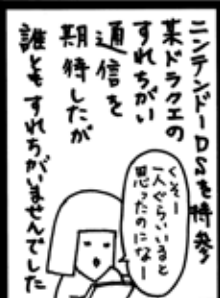 ニンテンドーDSを持参！
某ドラクエの
すれちがい
通信を
期待したが
誰ともすれちがいませんでした
くそー
一人ぐらいいると
思ったのになー